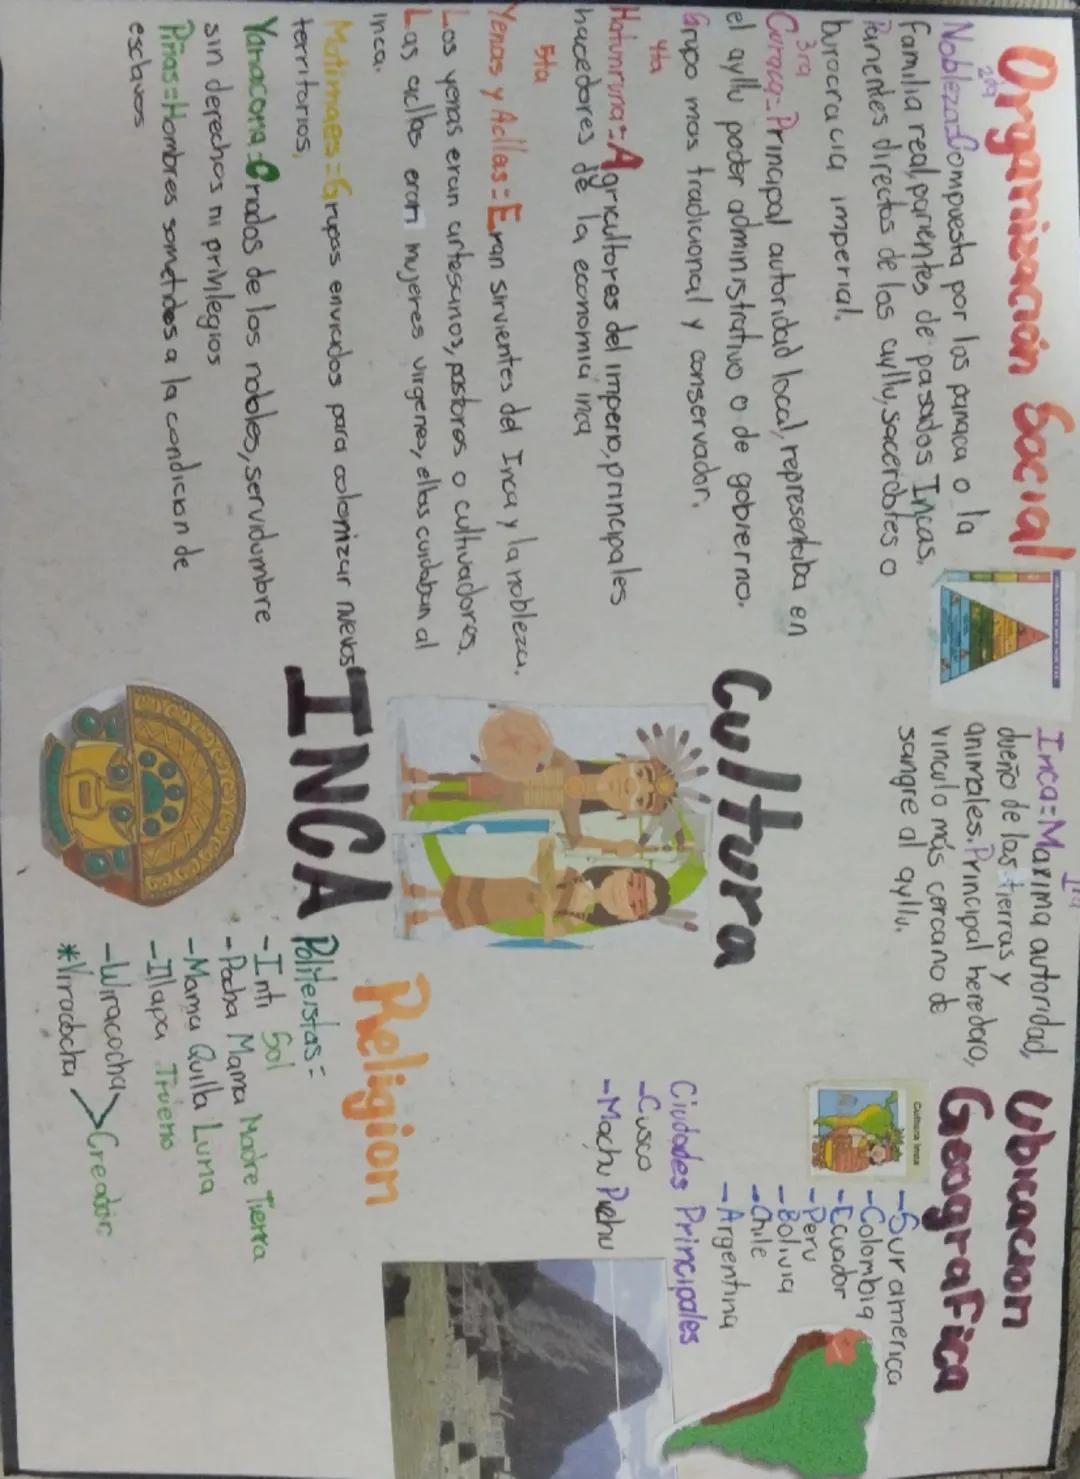 Organización Social
2da
Nobleza=Compuesta por las panaca o la
familia real, parientes de pasados Incas.
Parientes directos de los ayllu, sacerdotes o
burocracia imperial.
3ra
Curaca=Principal autoridad local, representaba en
el ayllu poder administrativo o de gobierno.
Grupo mas tradicional y conservador.
4ta
Hatunruna=Agricultores del imperio, principales
hacedores de la economia inca
5ta
Yenas y Acllas=Eran sirvientes del Inca y la nobleza.
Los yenas eran artesanos, pastores o cultivadores.
Las acllas eran mujeres virgenes, ellas cuidaban al
inca.
Motimaes=Grupos enviados para colonizar nuevos
territorios,
Yanacona=Criados de los nobles, servidumbre
sin derechos ni privilegios
Piñas=Hombres sometidos a la condicion de
esclavos
1ra
Inca=Maxima autoridad,
dueño de las tierras y
animales. Principal heredaro,
vinculo más cercano de
sangre al ayllu.
Cultura
INCA
Ubicacion
Geografica
Cultura Inca
-Sur america
-Colombia
-Ecuador
-Peru
-Bolivia
-Chile
-Argentina
Ciudades Principales
-Cusco
-Machu Pichu
Religion
Politeistas=
-Inti Sol
-Pacha Mama Madre Tierra
-Mama Quilla Luma
-Illapa Trueno
-Wiracocha
*Viracocha > Creador